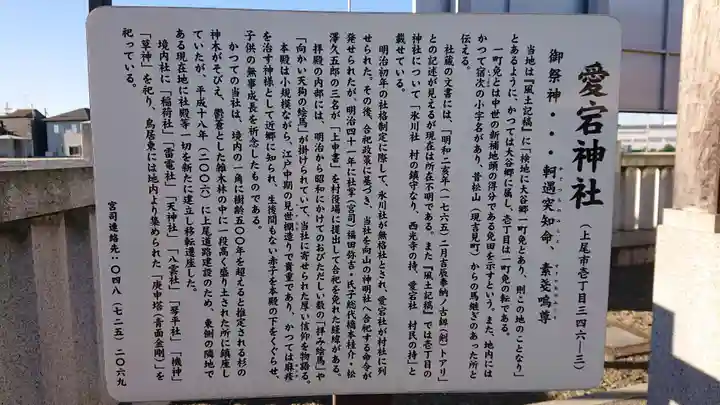 愛宕神社
(上尾市壱丁目三四六―三)
御祭神・・・軻遇突知命、素戔嗚尊
当地は『風土記稿』に「検地に大谷郷一町免とあり、則この地のことなり」
とあるように、かつては大谷郷に属し、壱丁目は一町免の転である。
一町免とは中世の新補地頭の得分である免田を示すという。また、地内には
かつて宿次の小字名があり、昔松山(現吉見町)からの馬継ぎのあった所と
伝える。
社蔵の文書には、「明和二亥年(一七六五)二月吉辰奉納ノ古錦(剣)トアリ」
との記述が見えるが現在は所在不明である。また『風土記稿』では壱丁目の
神社について「氷川社 村の鎮守なり、西光寺の持、愛宕社 村民の持」と
載せている。
明治初年の社格制定に際して、氷川社が無格社とされ、愛宕社が村社に列
せられた。その後、合祀政策に基づき、当社を向山の神明社へ合祀する命令が
発せられたが、明治四十一年に社掌(宮司)福田弥吉・氏子総代橋本桂介・松
澤久五郎の三名が「上申書」を村役場に提出して合祀を免れた経緯がある。
拝殿の内部には、明治から昭和にかけてのおびただしい数の「拝み絵馬」や
「向かい天狗の絵馬」が掛けられていて、当社に寄せられた厚い信仰を物語る。
本殿は小規模ながら、江戸中期の見世棚造りで貴重であり、かつては麻疹
を治す神様として近郷に知られ、生後間もない赤子を本殿の下をくぐらせ、
子供の無事成長を祈念したものである。
かつての当社は、境内の一角に樹齢五〇〇年を超えると推定される杉の
神木がそびえ、鬱蒼とした雑木林の中に一段高く盛り土された所に鎮座し
ていたが、平成十八年(二〇〇六)に上尾道路建設のため、東側の隣地で
ある現在地に社殿等一切を新たに建立し移転遷座した。
境内社に「稲荷社」「雷電社」「天神社」「八雲社」「琴平社」「機神」
「草神」を祀り、鳥居東には地内より集められた「庚申塔(青面金剛)」を
祀っている。
宮司連絡先:〇四八(七二五)二〇六九